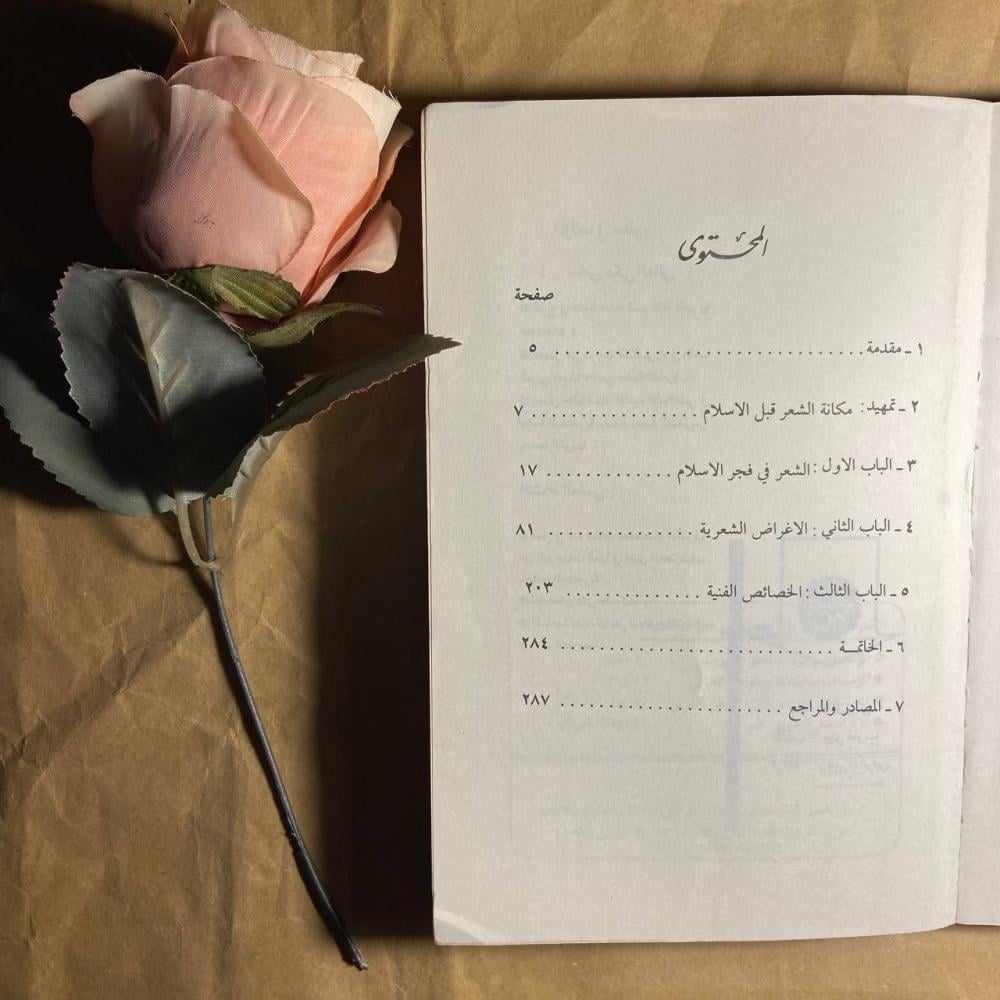 المحتوى
صفحة
١ ـ مقدمة ............................... ٥
٢ ـ تمهيد: مكانة الشعر قبل الاسلام ................. ٧
٣ ـ الباب الاول : الشعر في فجر الاسلام ............. ١٧
٤ ـ الباب الثاني : الاغراض الشعرية ............... ٨١
٥ ـ الباب الثالث : الخصائص الفنية .............. ٢٠٣
٦ ـ الخاتمة ............................ ٢٨٤
٧ ـ المصادر والمراجع ....................... ٢٨٧